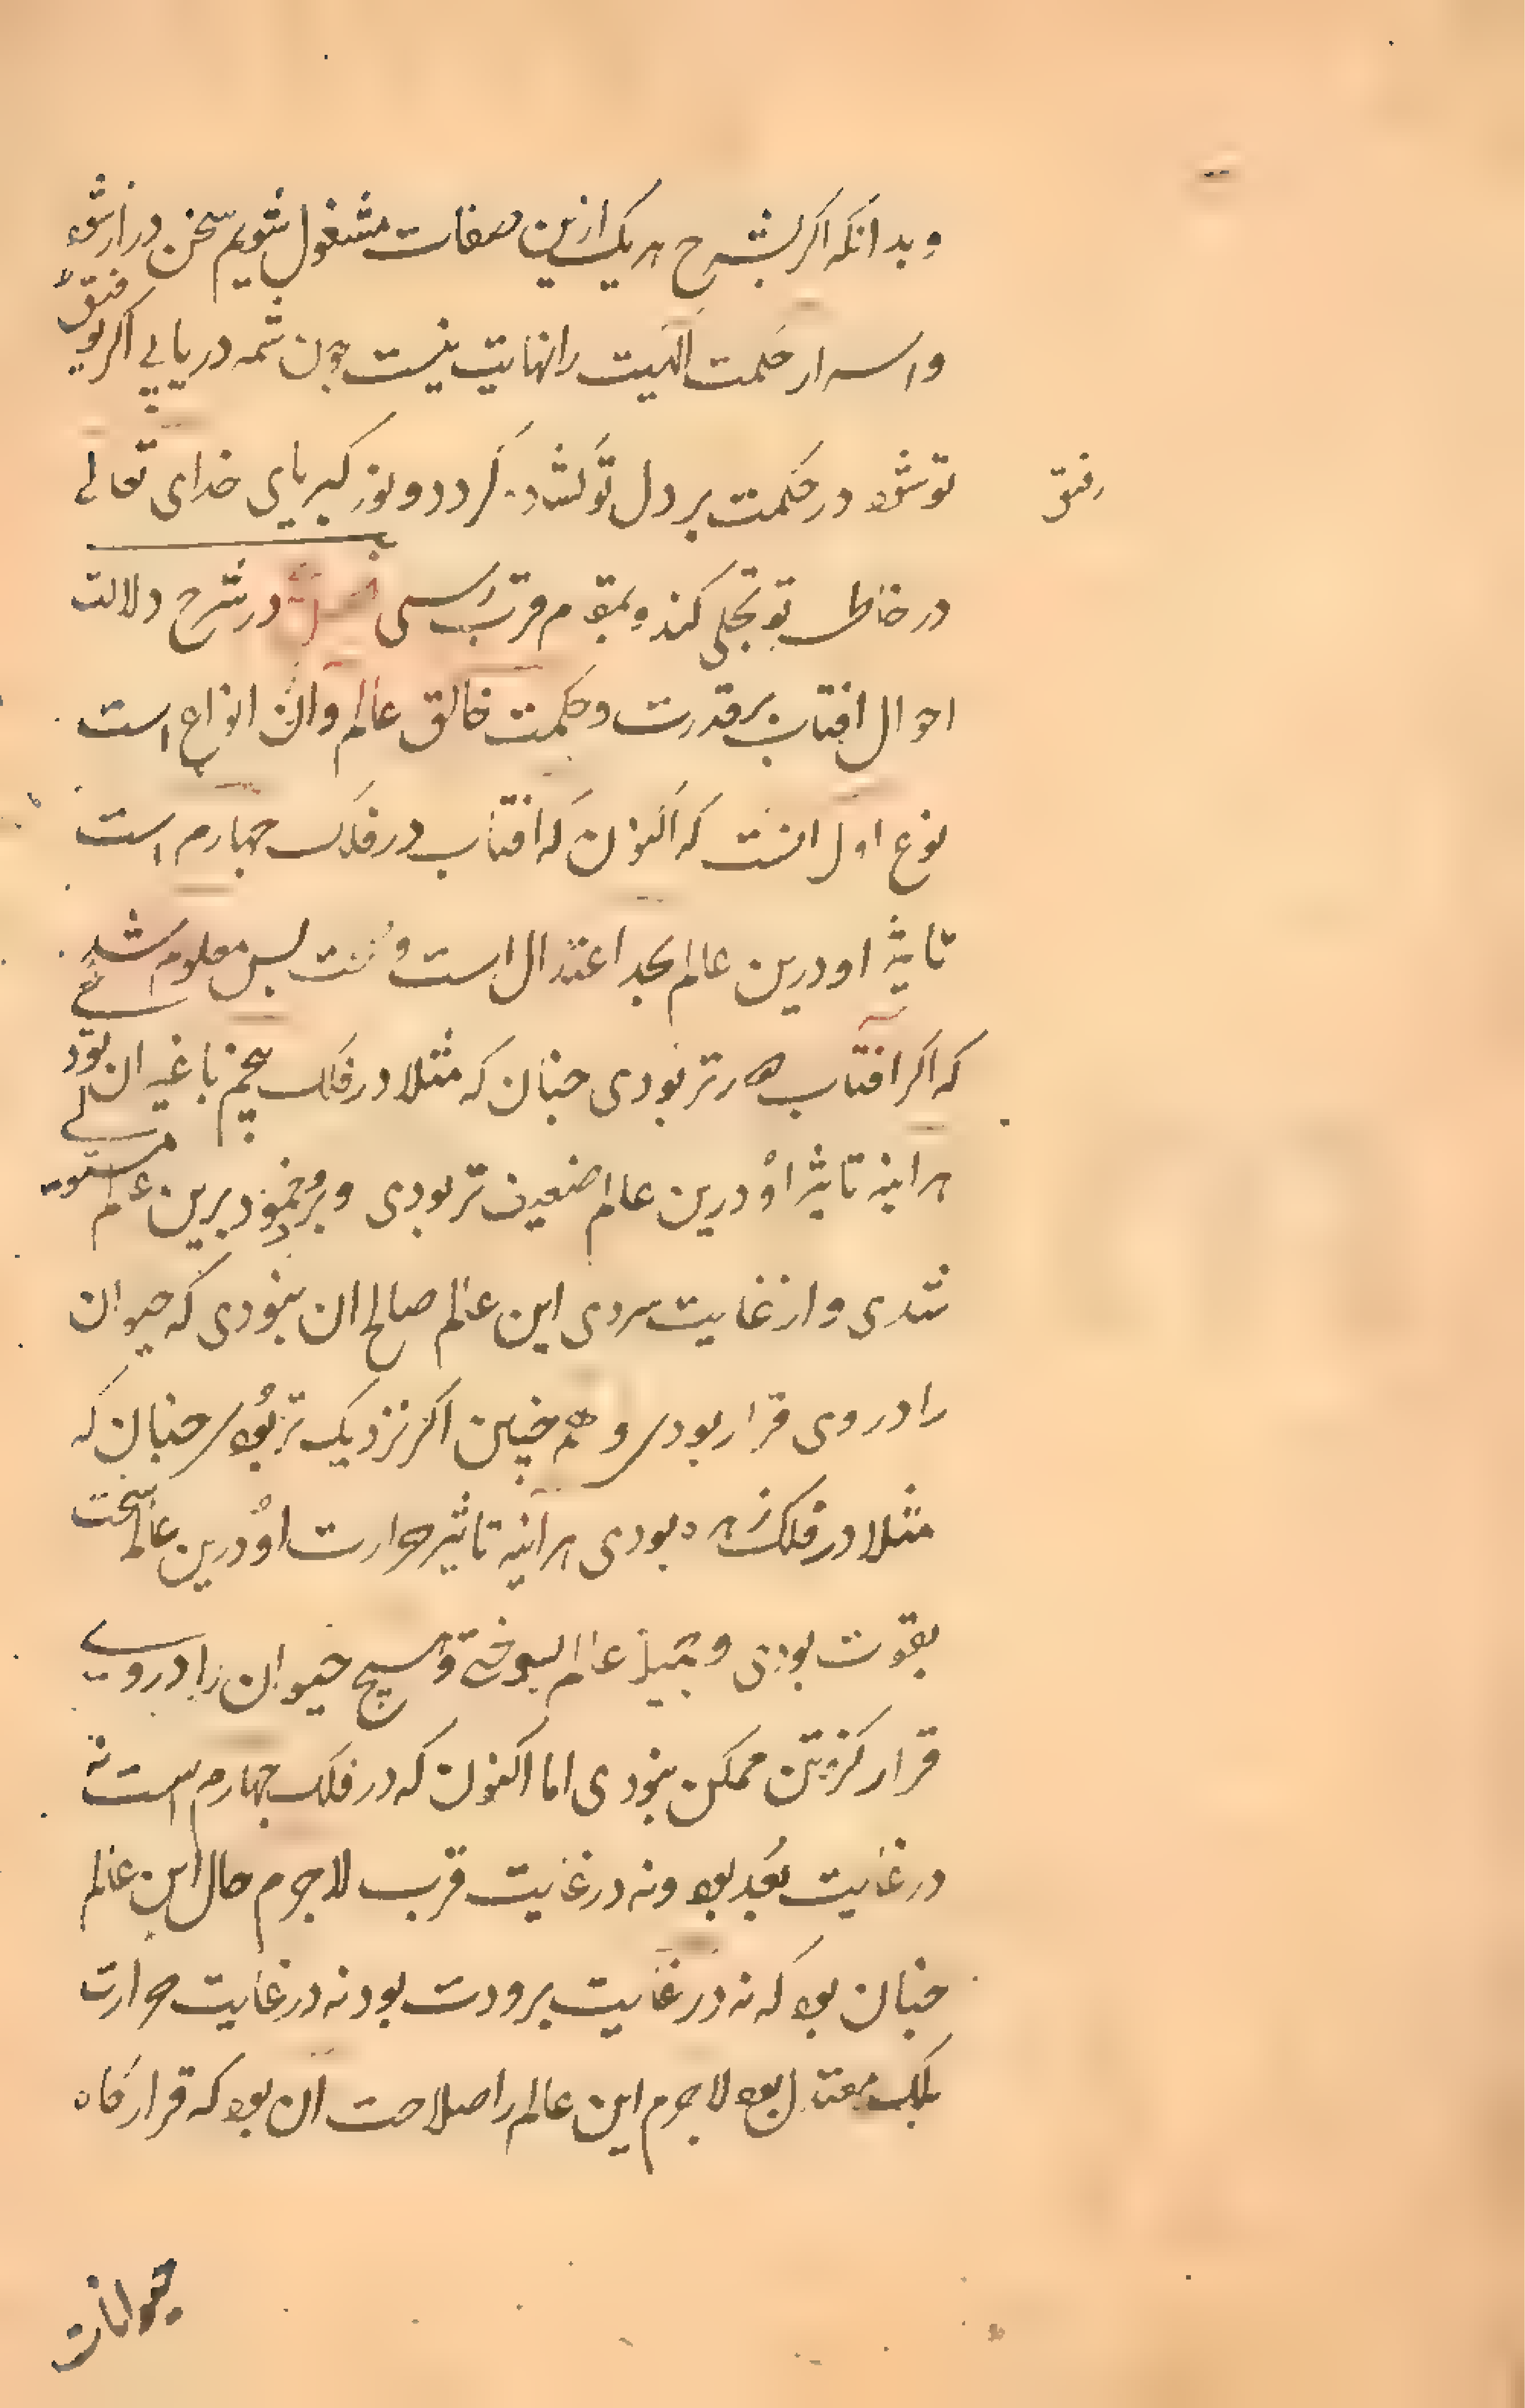 وبدانکه اکر بشرح هریک ازین صفات مشغول شویم سخن دراز شود
واسرار حکمت الهیت را نهایت نیست چون شمه دریابی اکر توفیق
رفیق
تو شود در حکمت بر دل تو کشاده کردد و نور کبریای خدای تعالی
در خاطر تو تجلی کند و بمقام قرب رسی فصل در شرح دلالت
احوال افتاب بر قدرت و حکمت خالق عالم وان انواع است
نوع اول انست که اکنون که افتاب در فلک چهارم است
تاثیر او درین عالم بحد اعتدال است و پس معلوم شد
که اکر افتاب دورتر بودی چنان که مثلا در فلک پنجم یا غیر ان بودی
هراینه تاثیر او درین عالم ضعیف تر بودی و برد و خمود برین عالم مستولی
شدی و از غایت سردی این عالم صالح ان نبودی که حیوان
را در وی قرار بودی و هم چنین اکر نزدیک تر بودی چنان که
مثلا در فلک زهره بودی هرآینه تاثیر حرارت او درین عالم سخت
بقوت بودی و عالم بسوختی و هیچ حیوان را در وی
قرار کرفتن ممکن نبودی اما اکنون که در فلک چهارم است نه
در غایت بعد بود و نه در غایت قرب لاجرم حال این عالم
چنان بود که نه در غایت برودت بود نه در غایت حرارت
بلکه معتدل بود لاجرم این عالم را صلاحت آن بود که قرارکاه
حیوانات